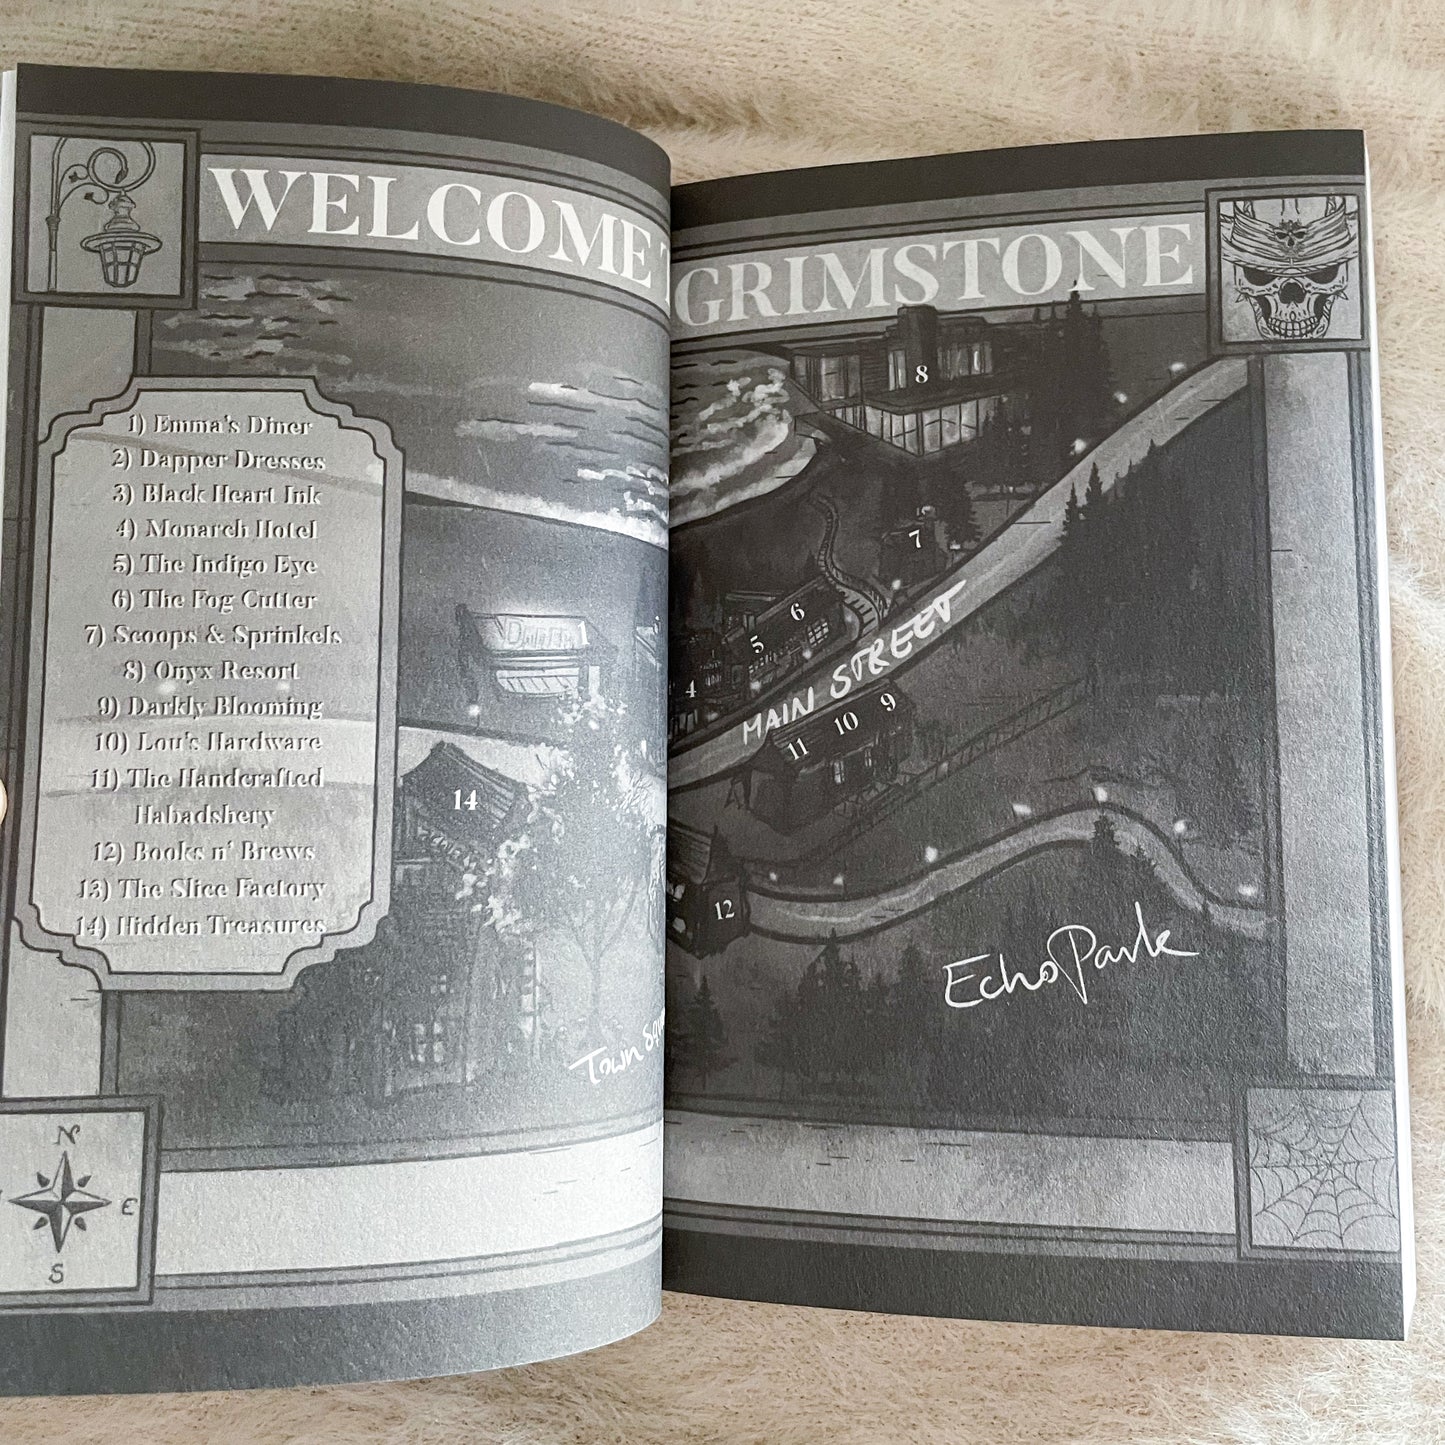 WELCOME T
GRIMSTONE
1) Emma's Diner
2) Dapper Dresses
3) Black Heart Ink
4) Monarch Hotel
5) The Indigo Eye
6) The Fog Cutter
7) Scoops & Sprinkels
8) Onyx Resort
9) Darkly Blooming
10) Lou's Hardware
11) The Handcrafted
Habadshery
12) Books n' Brews
13) The Slice Factory
14) Hidden Treasures
14
Town
N
E
S
8
7
6
5
4
MAIN STREET
9
10
11
12
Echo Park